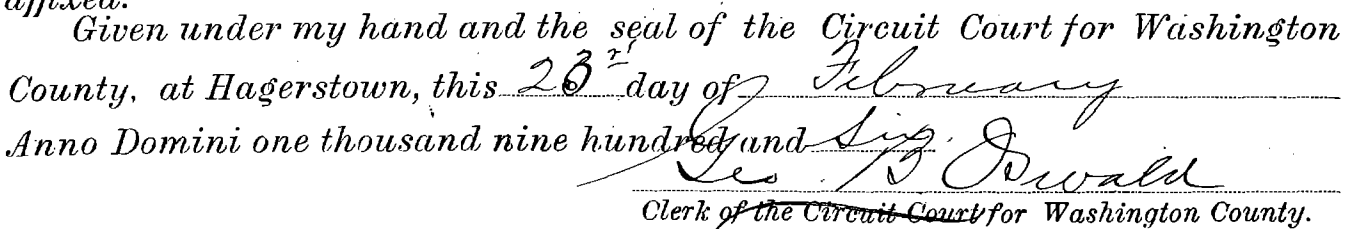 affixed.
Given under my hand and the seal of the Circuit Court for Washington
County, at Hagerstown, this 23rd day of February
Anno Domini one thousand nine hundred and Six.
Geo. B. Oswald
Clerk of the Circuit Court for Washington County.